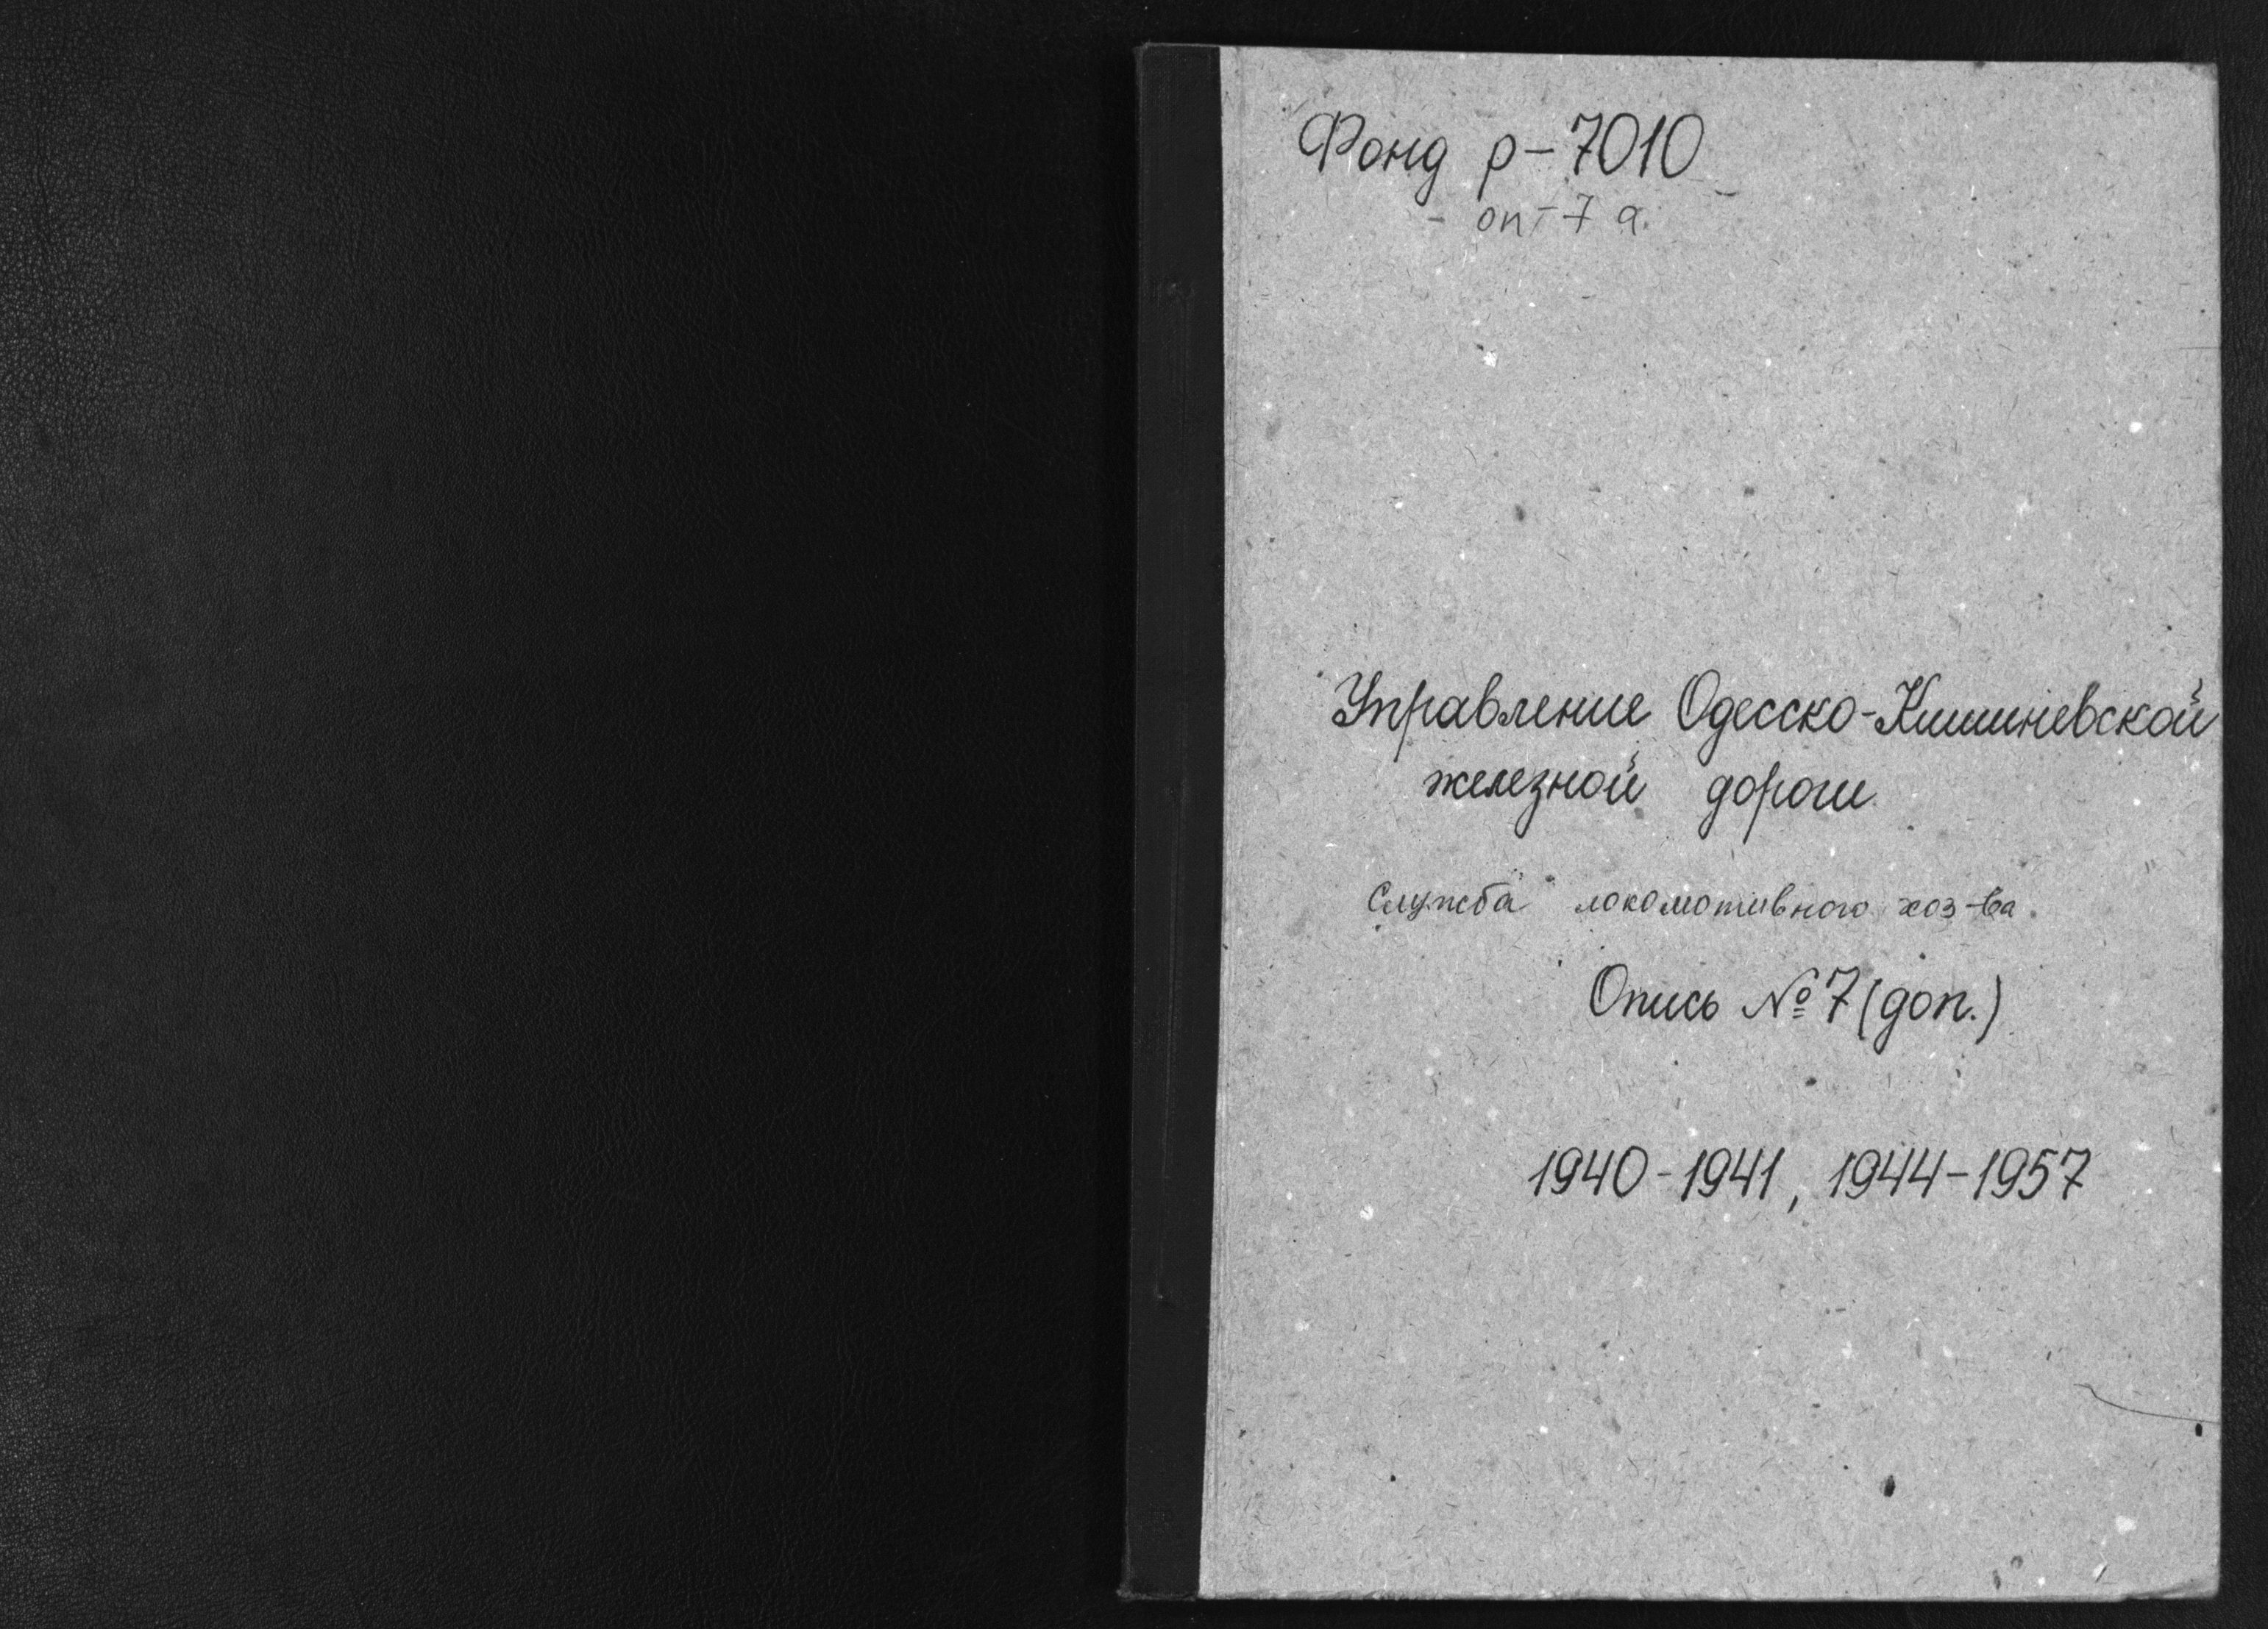 Фонд р-7010
- оп-7 а.
Управление Одесско-Кишиневской
железной дороги
Служба локомотивного хоз-ва.
Опись №7(доп.)
1940-1941, 1944-1957